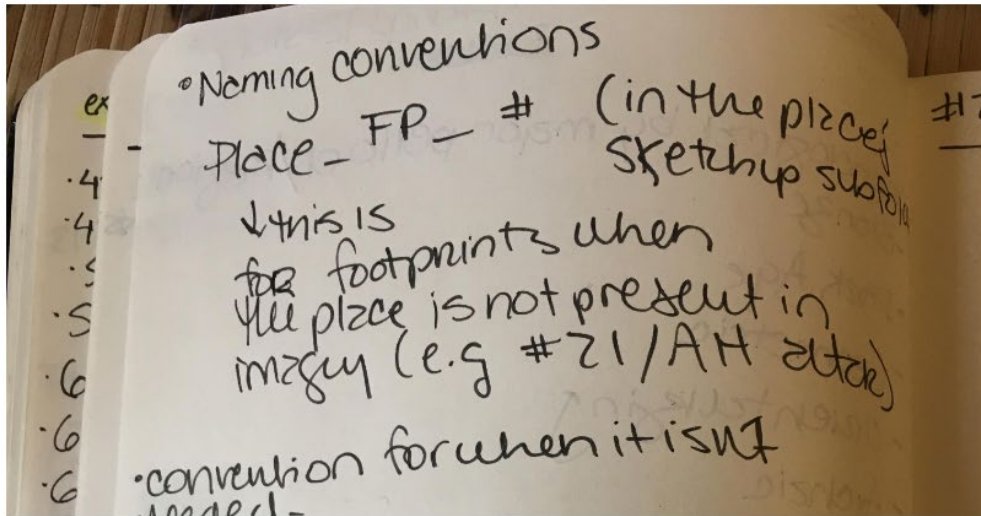 • Naming conventions
Place_ FP_ # (in the place's
sketchup subfol
↓ this is
for footprints when
the place is not present in
imagery (e.g #21/AH attck)
• convention for when it isn't
needed-
ex
-
#1
• 4
• 4
• 5
• 5
• 6
• 6
• 6